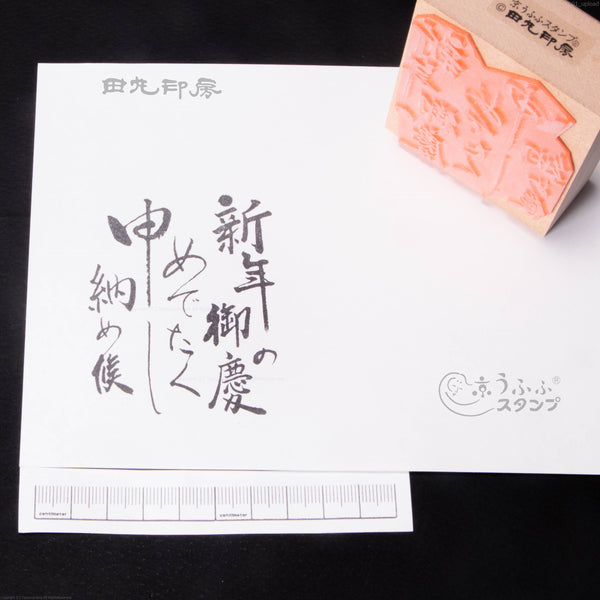 京うふふスタンプ®
©田丸印房
田丸印房
新年の
御慶
めでたく
申し
納め候
京うふふ®
スタンプ
centimeter
centimeter